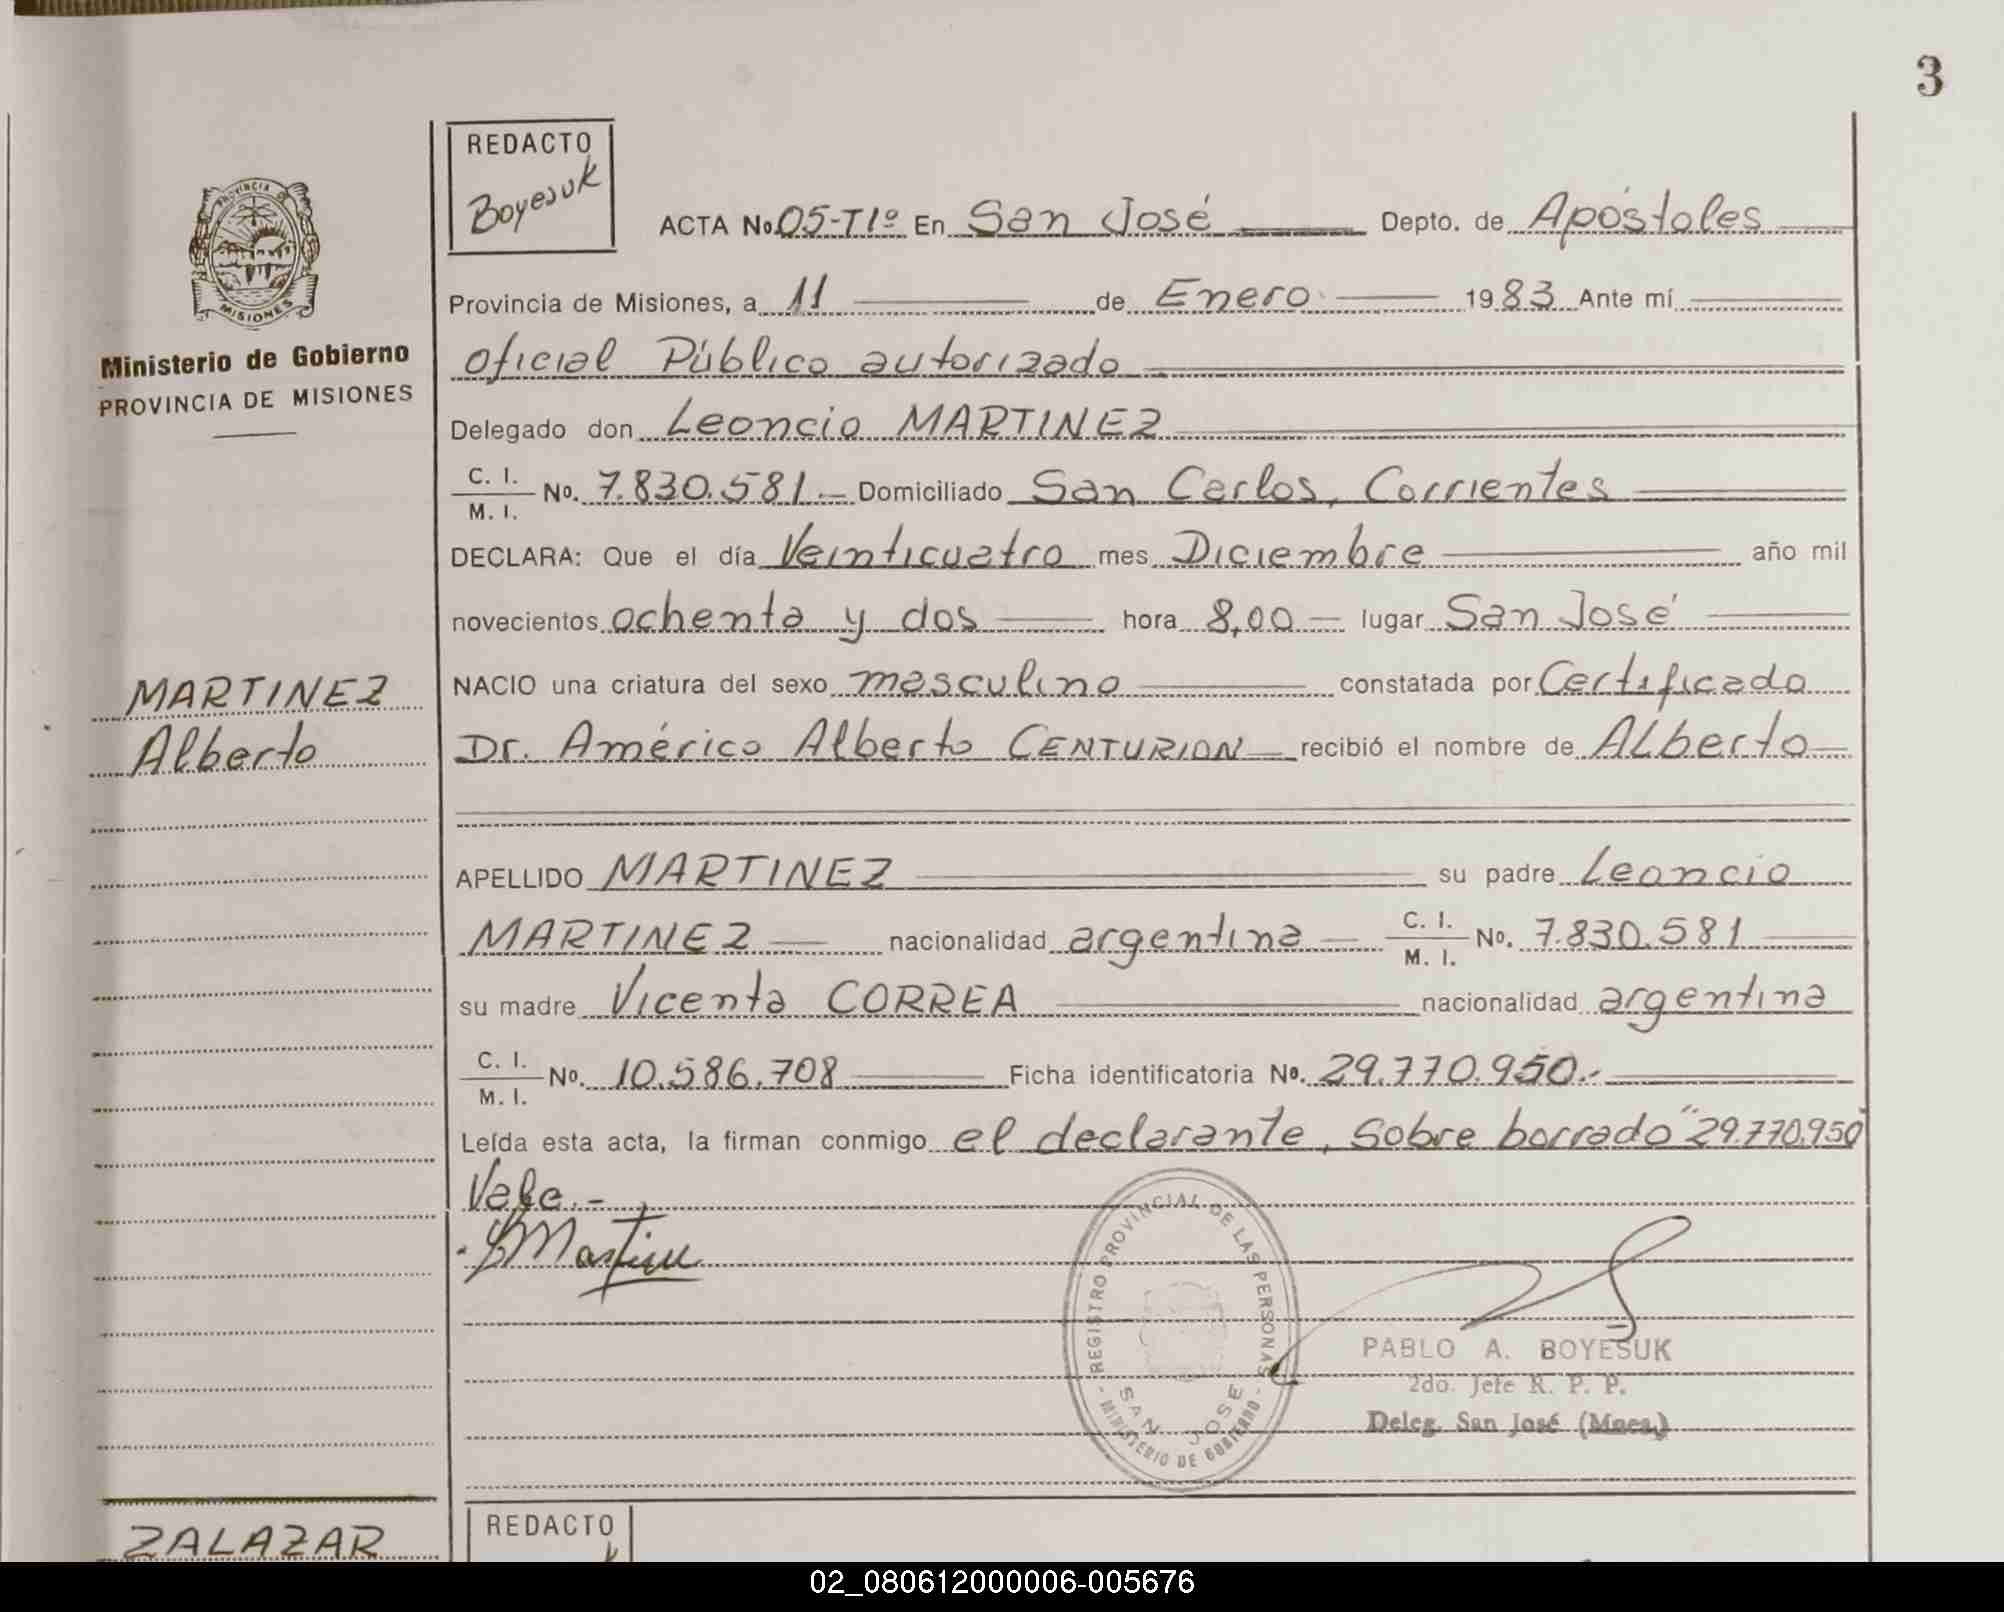 3
REDACTO
Boyesuk
ACTA No. 05-T1º En San José Depto. de Apóstoles
PROVINCIA DE
MISIONES
Provincia de Misiones, a 11 de Enero 1983 Ante mí
Ministerio de Gobierno
PROVINCIA DE MISIONES
oficial Público autorizado
Delegado don Leoncio MARTINEZ
C. I.
M. I. No. 7.830.581.- Domiciliado San Carlos, Corrientes
DECLARA: Que el día Veinticuatro mes Diciembre año mil
novecientos ochenta y dos hora 8,00 lugar San José
MARTINEZ
Alberto
NACIO una criatura del sexo masculino constatada por Certificado
Dr. Américo Alberto CENTURION recibió el nombre de ALberto
APELLIDO MARTINEZ su padre Leoncio
MARTINEZ nacionalidad argentina C. I.
M. I. No. 7.830.581
su madre Vicenta CORREA nacionalidad argentina
C. I.
M. I. No. 10.586.708 Ficha identificatoria Nº. 29.770.950.-
Leída esta acta, la firman conmigo el declarante, sobre borrado "29.770.950"
Vale.-
LMartinez
REGISTRO PROVINCIAL DE LAS PERSONAS
SAN JOSE
- MINISTERIO DE GOBIERNO -
PABLO A. BOYESUK
2do. Jefe R. P. P.
Deleg. San José (Mnes.)
ZALAZAR
REDACTO
02_080612000006-005676